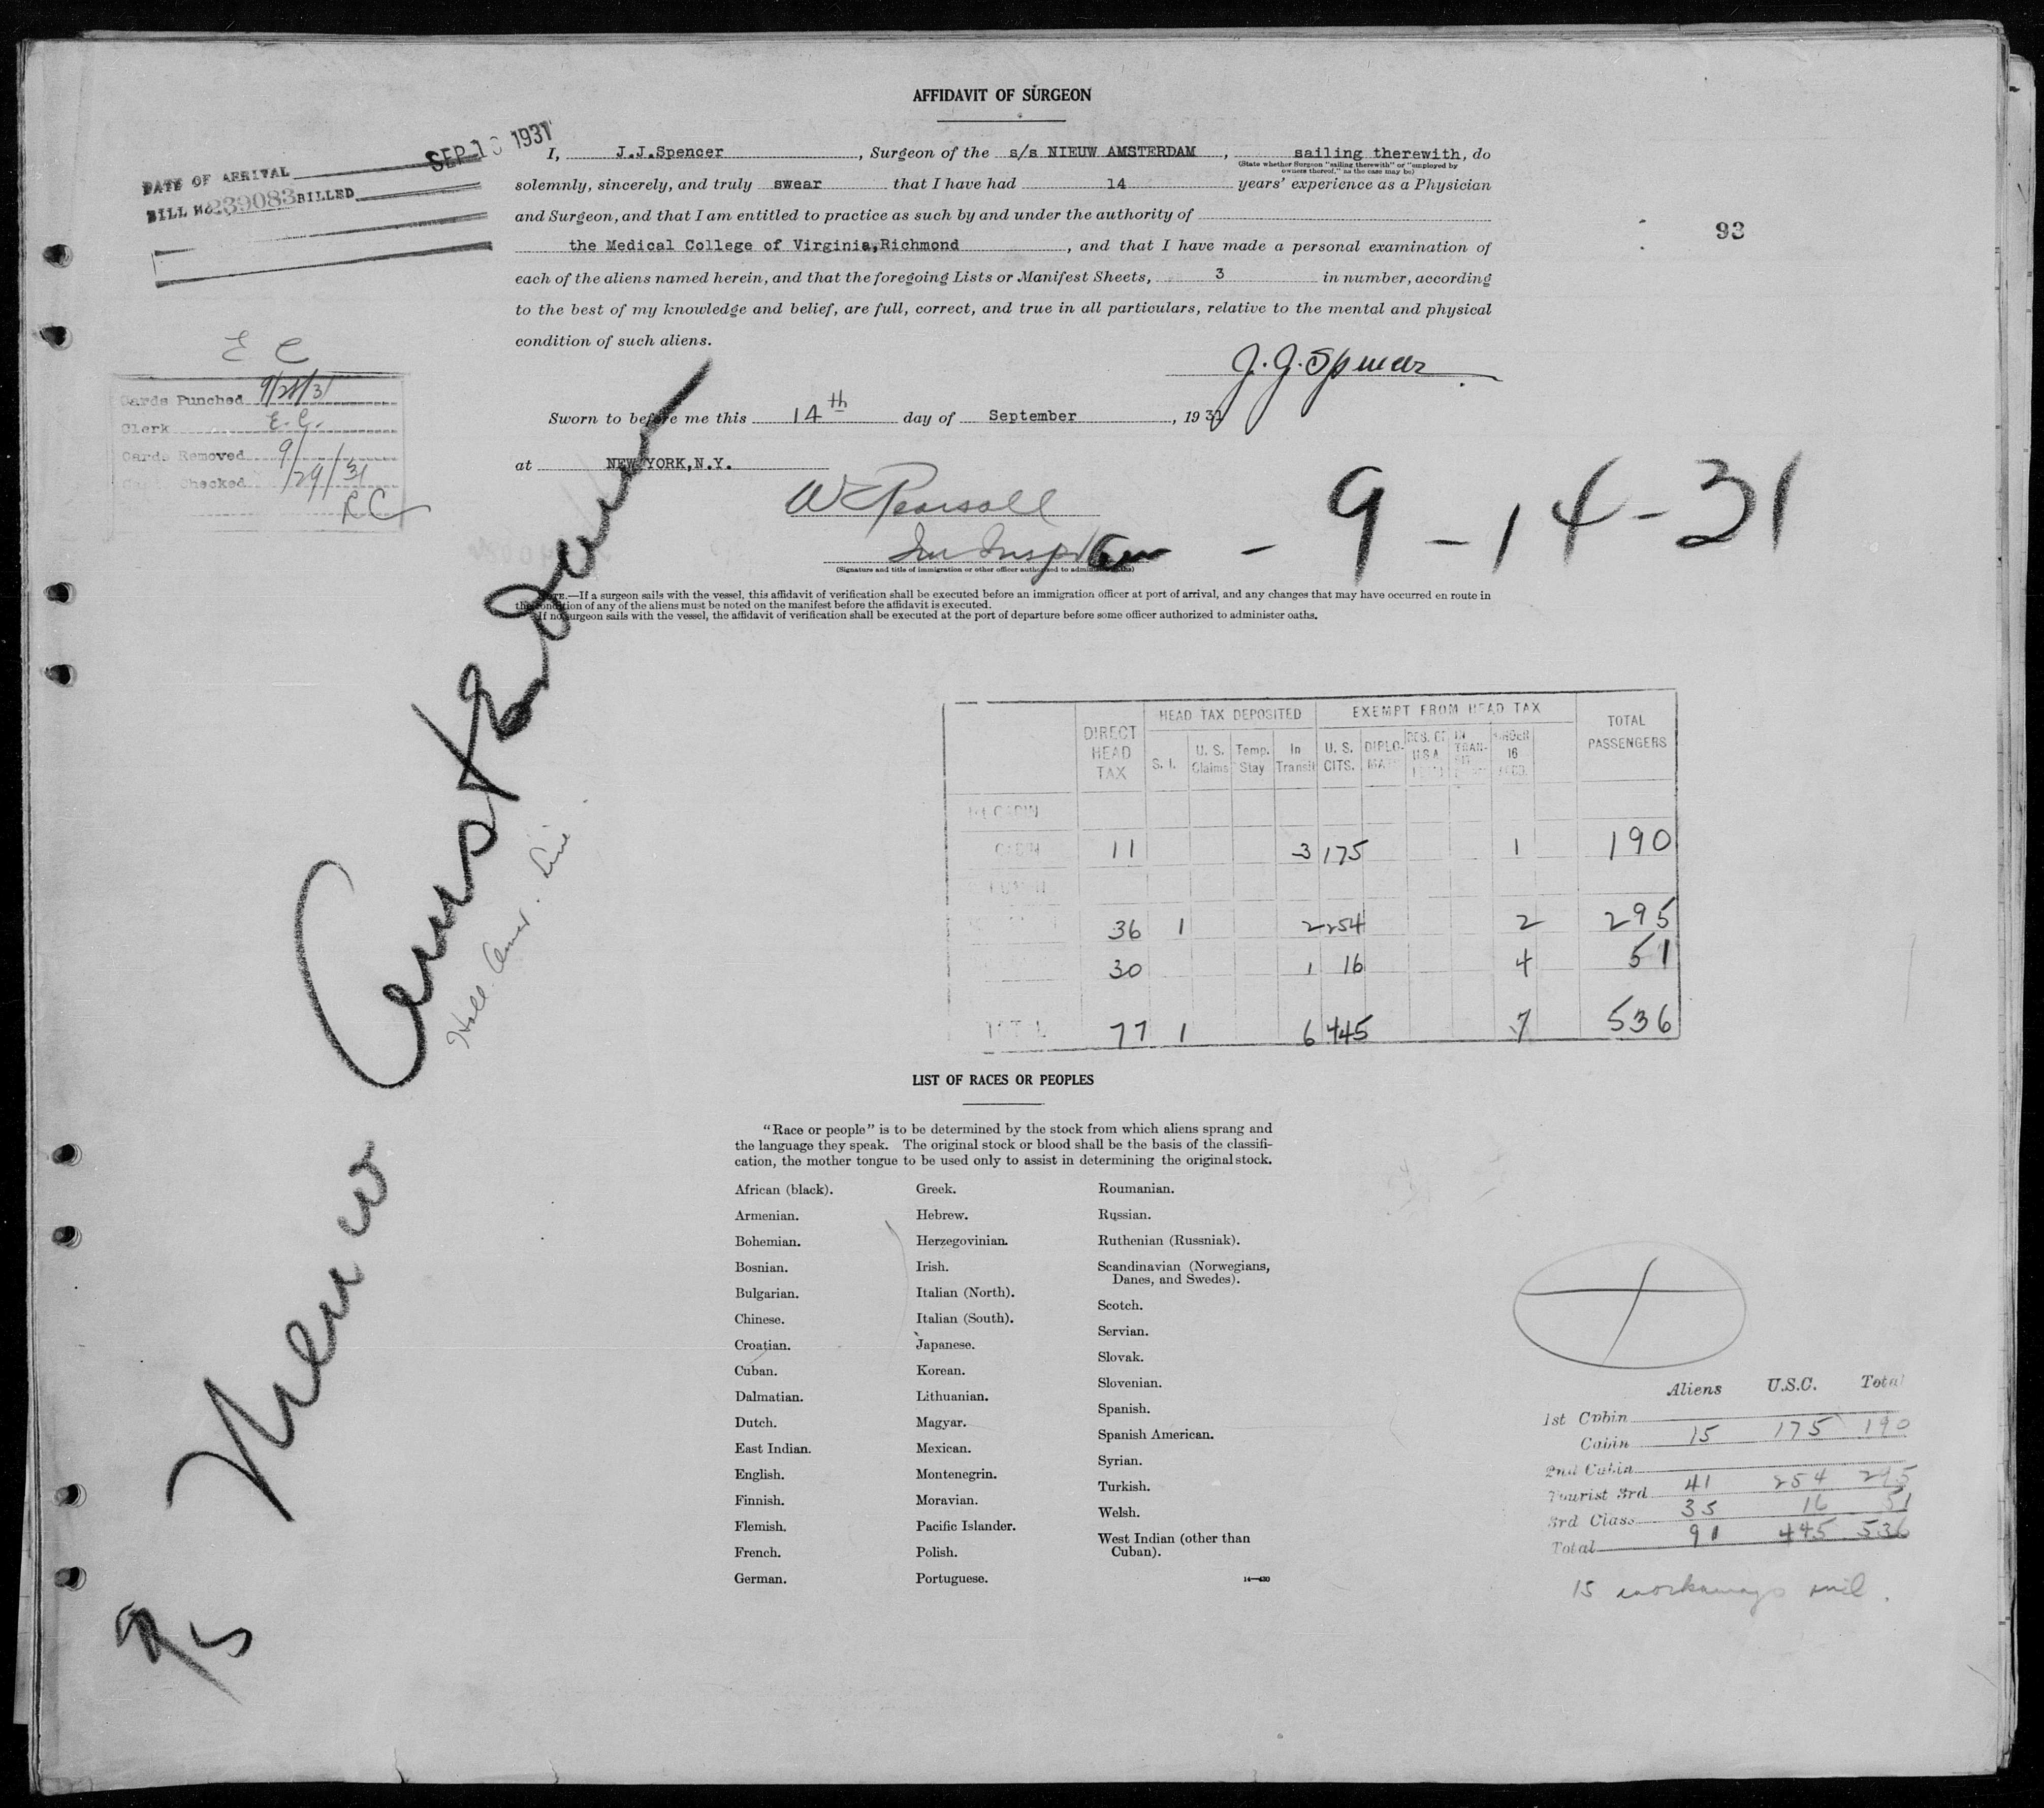 AFFIDAVIT OF SURGEON
SEP 1 1931
DATE OF ARRIVAL
BILL No. 239083 BILLED
I, J.J.Spencer, Surgeon of the s/s NIEUW AMSTERDAM, sailing therewith, do
(State whether Surgeon "sailing therewith" or "employed by
owners thereof," as the case may be)
solemnly, sincerely, and truly swear that I have had 14 years' experience as a Physician
and Surgeon, and that I am entitled to practice as such by and under the authority of
the Medical College of Virginia,Richmond, and that I have made a personal examination of
each of the aliens named herein, and that the foregoing Lists or Manifest Sheets, 3 in number, according
to the best of my knowledge and belief, are full, correct, and true in all particulars, relative to the mental and physical
condition of such aliens.
93
J. J. Spencer
Sworn to before me this 14th day of September, 1931
at NEW YORK,N.Y.
W Pearsall
Im Insp
(Signature and title of immigration or other officer authorized to administer oaths)
- 9 - 14 - 31
E C
Cards Punched 9/28/31
Clerk E. C.
Cards Removed 9/29/31
Checked
NOTE.—If a surgeon sails with the vessel, this affidavit of verification shall be executed before an immigration officer at port of arrival, and any changes that may have occurred en route in
the condition of any of the aliens must be noted on the manifest before the affidavit is executed.
If no surgeon sails with the vessel, the affidavit of verification shall be executed at the port of departure before some officer authorized to administer oaths.
Nieuw Amsterdam
Holl. Amer. Line
DIRECT HEAD TAX HEAD TAX DEPOSITED EXEMPT FROM HEAD TAX TOTAL PASSENGERS
S. I. U. S. Claims Temp. Stay In Transit U. S. CITS. DIPLOMAT RES. OF U.S.A. IN TRANSIT UNDER 16
1st CABIN
CABIN 11 3 175 1 190
36 1 2 254 2 295
30 1 16 4 51
TOTAL 77 1 6 445 7 536
LIST OF RACES OR PEOPLES
"Race or people" is to be determined by the stock from which aliens sprang and
the language they speak. The original stock or blood shall be the basis of the classifi-
cation, the mother tongue to be used only to assist in determining the original stock.
African (black).
Armenian.
Bohemian.
Bosnian.
Bulgarian.
Chinese.
Croatian.
Cuban.
Dalmatian.
Dutch.
East Indian.
English.
Finnish.
Flemish.
French.
German.
Greek.
Hebrew.
Herzegovinian.
Irish.
Italian (North).
Italian (South).
Japanese.
Korean.
Lithuanian.
Magyar.
Mexican.
Montenegrin.
Moravian.
Pacific Islander.
Polish.
Portuguese.
Roumanian.
Russian.
Ruthenian (Russniak).
Scandinavian (Norwegians,
Danes, and Swedes).
Scotch.
Servian.
Slovak.
Slovenian.
Spanish.
Spanish American.
Syrian.
Turkish.
Welsh.
West Indian (other than
Cuban).
Aliens U.S.C. Total
1st Cabin
Cabin 15 175 190
2nd Cabin
Tourist 3rd 41 254 295
3rd Class 35 16 51
Total 91 445 536
15 workaways